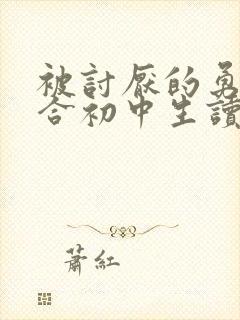 被討厭的勇
合初中生讀
蕭紅